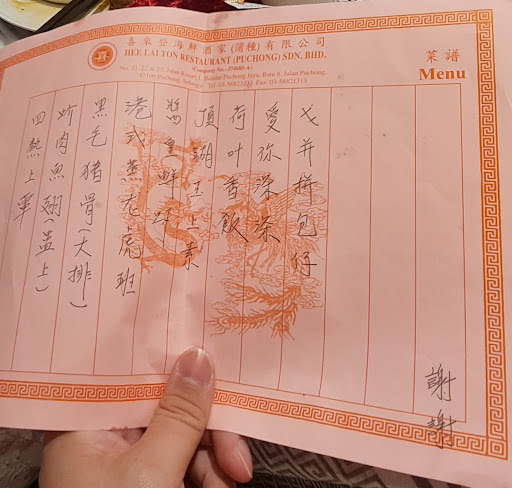 喜來登海鮮酒家(蒲種)有限公司
HEE LAI TON RESTAURANT (PUCHONG) SDN. BHD.
No. 21, 22 & 23, Jalan Kenari 1, Bandar Puchong Jaya, Batu 8, Jalan Puchong,
47100 Puchong, Selangor. Tel: Fax: 03-58821313
菜譜
Menu
四熱上葷
蚧肉魚翅(盅上)
黑毛猪骨(大排)
港式蒸老虎班
皇鮮
頂湖玉上素
荷叶香飯
愛你深深
戈并拼包仔
謝謝